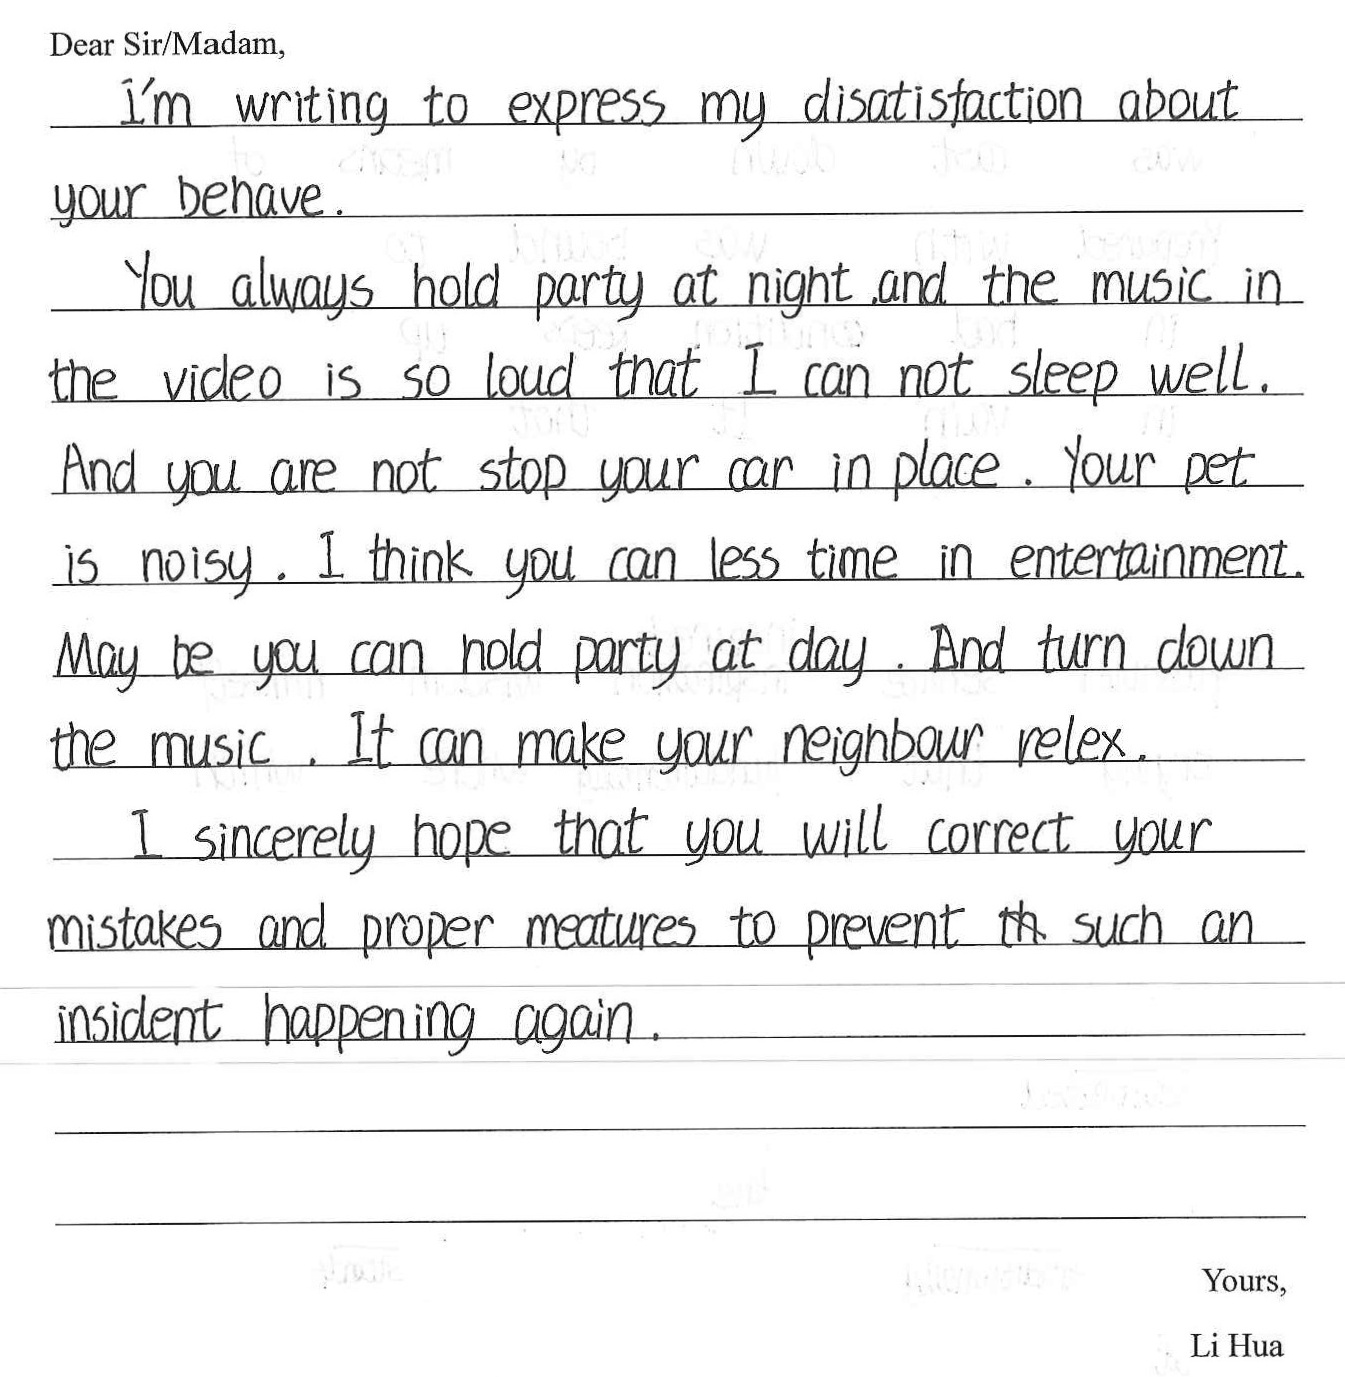 Dear Sir/Madam,
I'm writing to express my disatisfaction about
your behave.
You always hold party at night ,and the music in
the video is so loud that I can not sleep well.
And you are not stop your car in place. Your pet
is noisy. I think you can less time in entertainment.
May be you can hold party at day. And turn down
the music. It can make your neighbour relex.
I sincerely hope that you will correct your
mistakes and proper meatures to prevent such an
insident happening again.
Yours,
Li Hua